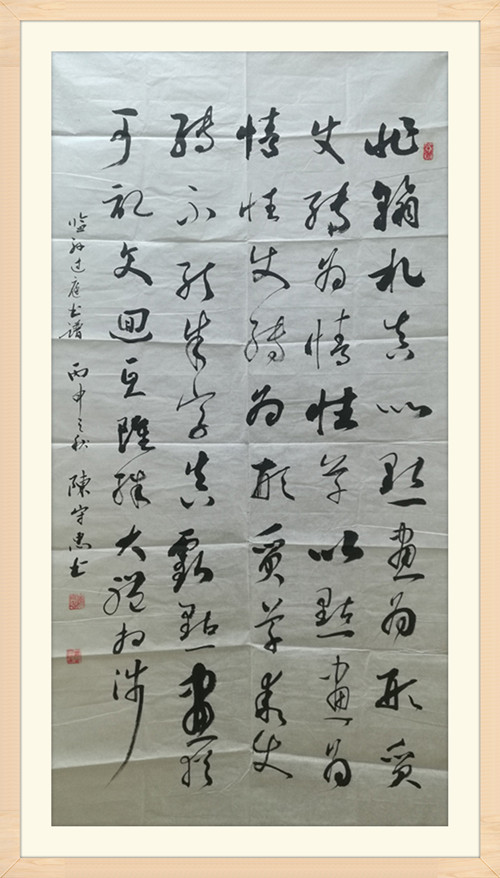 非翰札真以點畫為形質
使轉為情性草以點畫為
情性使轉為形質草乖使
轉不能成字真虧點畫猶
可記文迴互雖殊大體相涉
臨孫過庭书譜 丙申之秋 陳守忠书